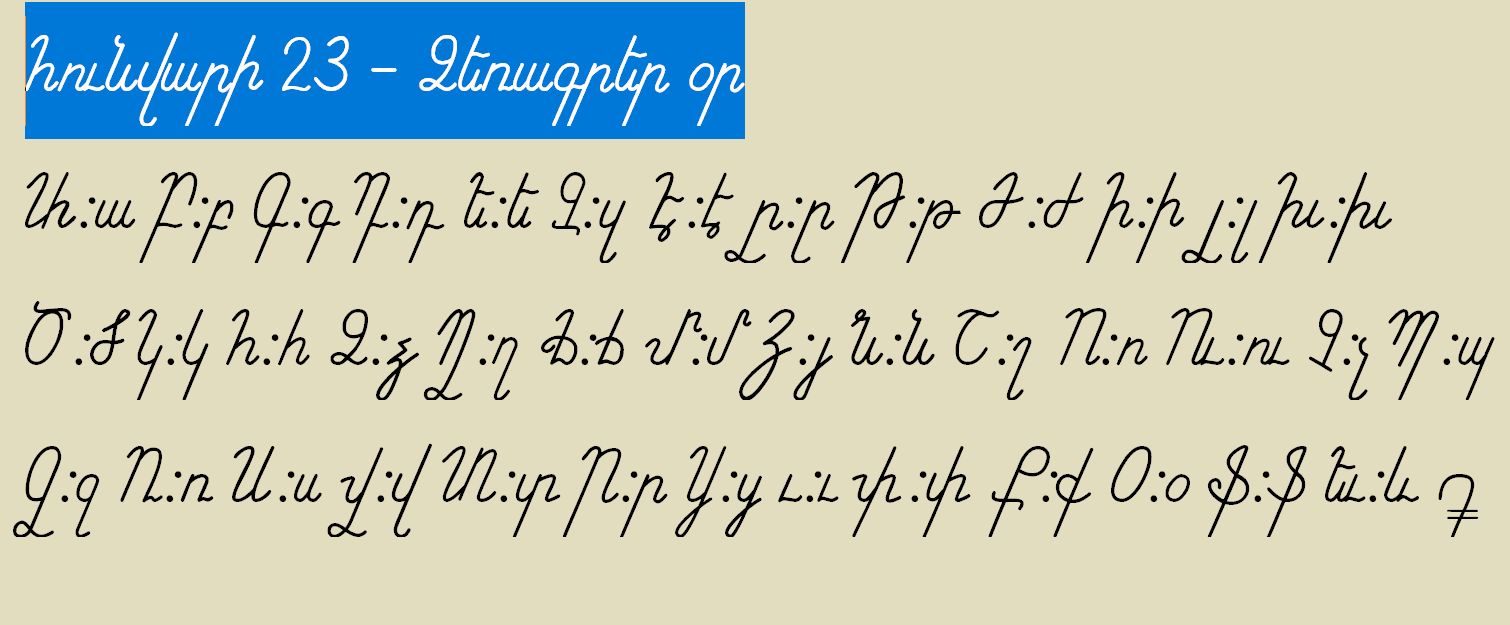 Հունվարի 23 – Ձեռագրեր օր
Ա:ա Բ:բ Գ:գ Դ:դ Ե:ե Զ:զ Է:է Ը:ը Թ:թ Ժ:ժ Ի:ի Լ:լ Խ:խ
Ծ:ծ Կ:կ Հ:հ Ձ:ձ Ղ:ղ Ճ:ճ Մ:մ Յ:յ Ն:ն Շ:շ Ո:ո Ու:ու Չ:չ Պ:պ
Ջ:ջ Ռ:ռ Ս:ս Վ:վ Տ:տ Ր:ր Ց:ց Ւ:ւ Փ:փ Ք:ք Օ:օ Ֆ:ֆ Եւ:և ֏